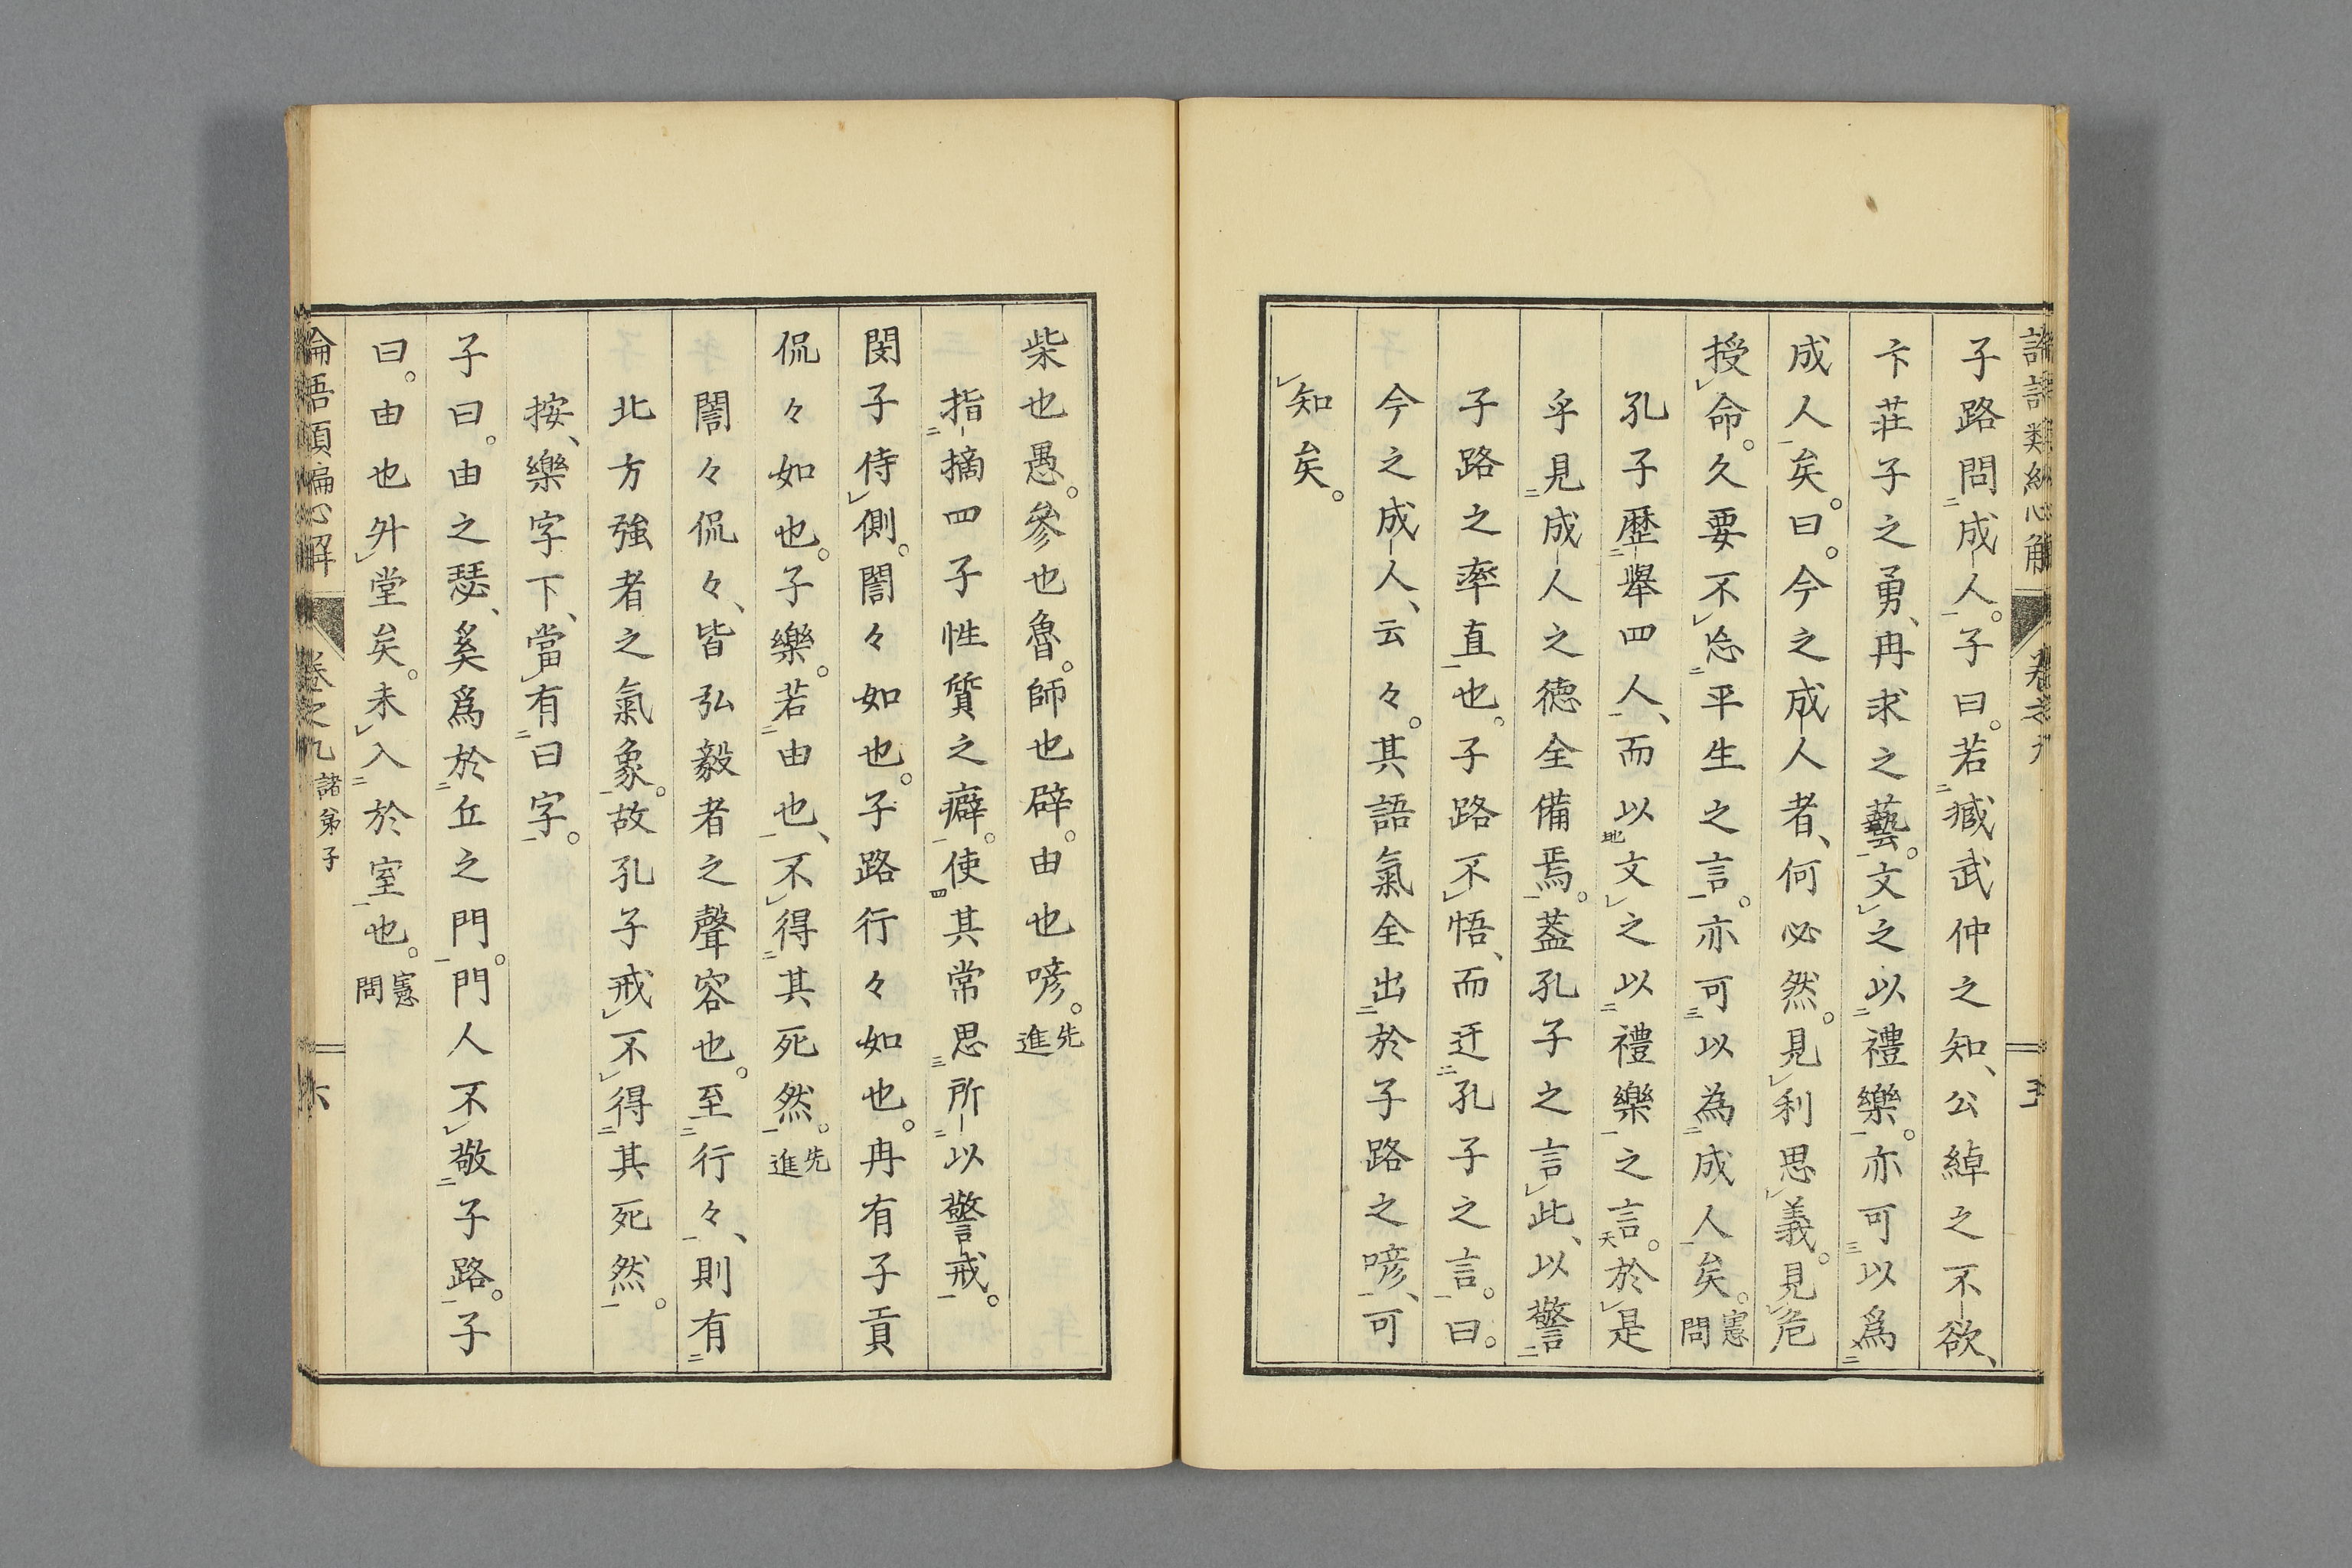 子路問成人。子曰。若臧武仲之知、公綽之不欲、
卞莊子之勇、冉求之藝。文之以禮樂。亦可以爲
成人矣。曰。今之成人者、何必然。見利思義。見危
授命。久要不忘平生之言。亦可以為成人矣。憲問
孔子歷舉四人、而以文之以禮樂之言。於是
乎見成人之德全備焉。蓋孔子之言此、以警
子路之率直也。子路不悟、而迂孔子之言。曰。
今之成人、云々。其語氣全出於子路之喭、可
知矣。
柴也愚。參也魯。師也辟。由也喭。先進
指摘四子性質之癖。使其常思所以警戒。
閔子侍側。誾々如也。子路行々如也。冉有子貢
侃々如也。子樂。若由也、不得其死然。先進
誾々侃々、皆弘毅者之聲容也。至行々、則有
北方強者之氣象。故孔子戒不得其死然。
按、樂字下、當有曰字。
子曰。由之瑟、奚爲於丘之門。門人不敬子路。子
曰。由也升堂矣。未入於室也。憲問
論語類編心解 卷之九 諸弟子 六